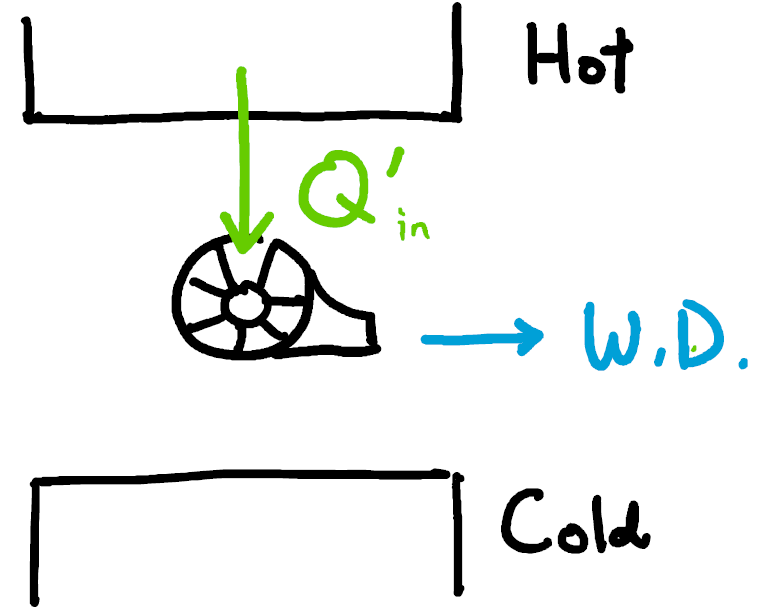 Hot
Q'in
W.D.
Cold